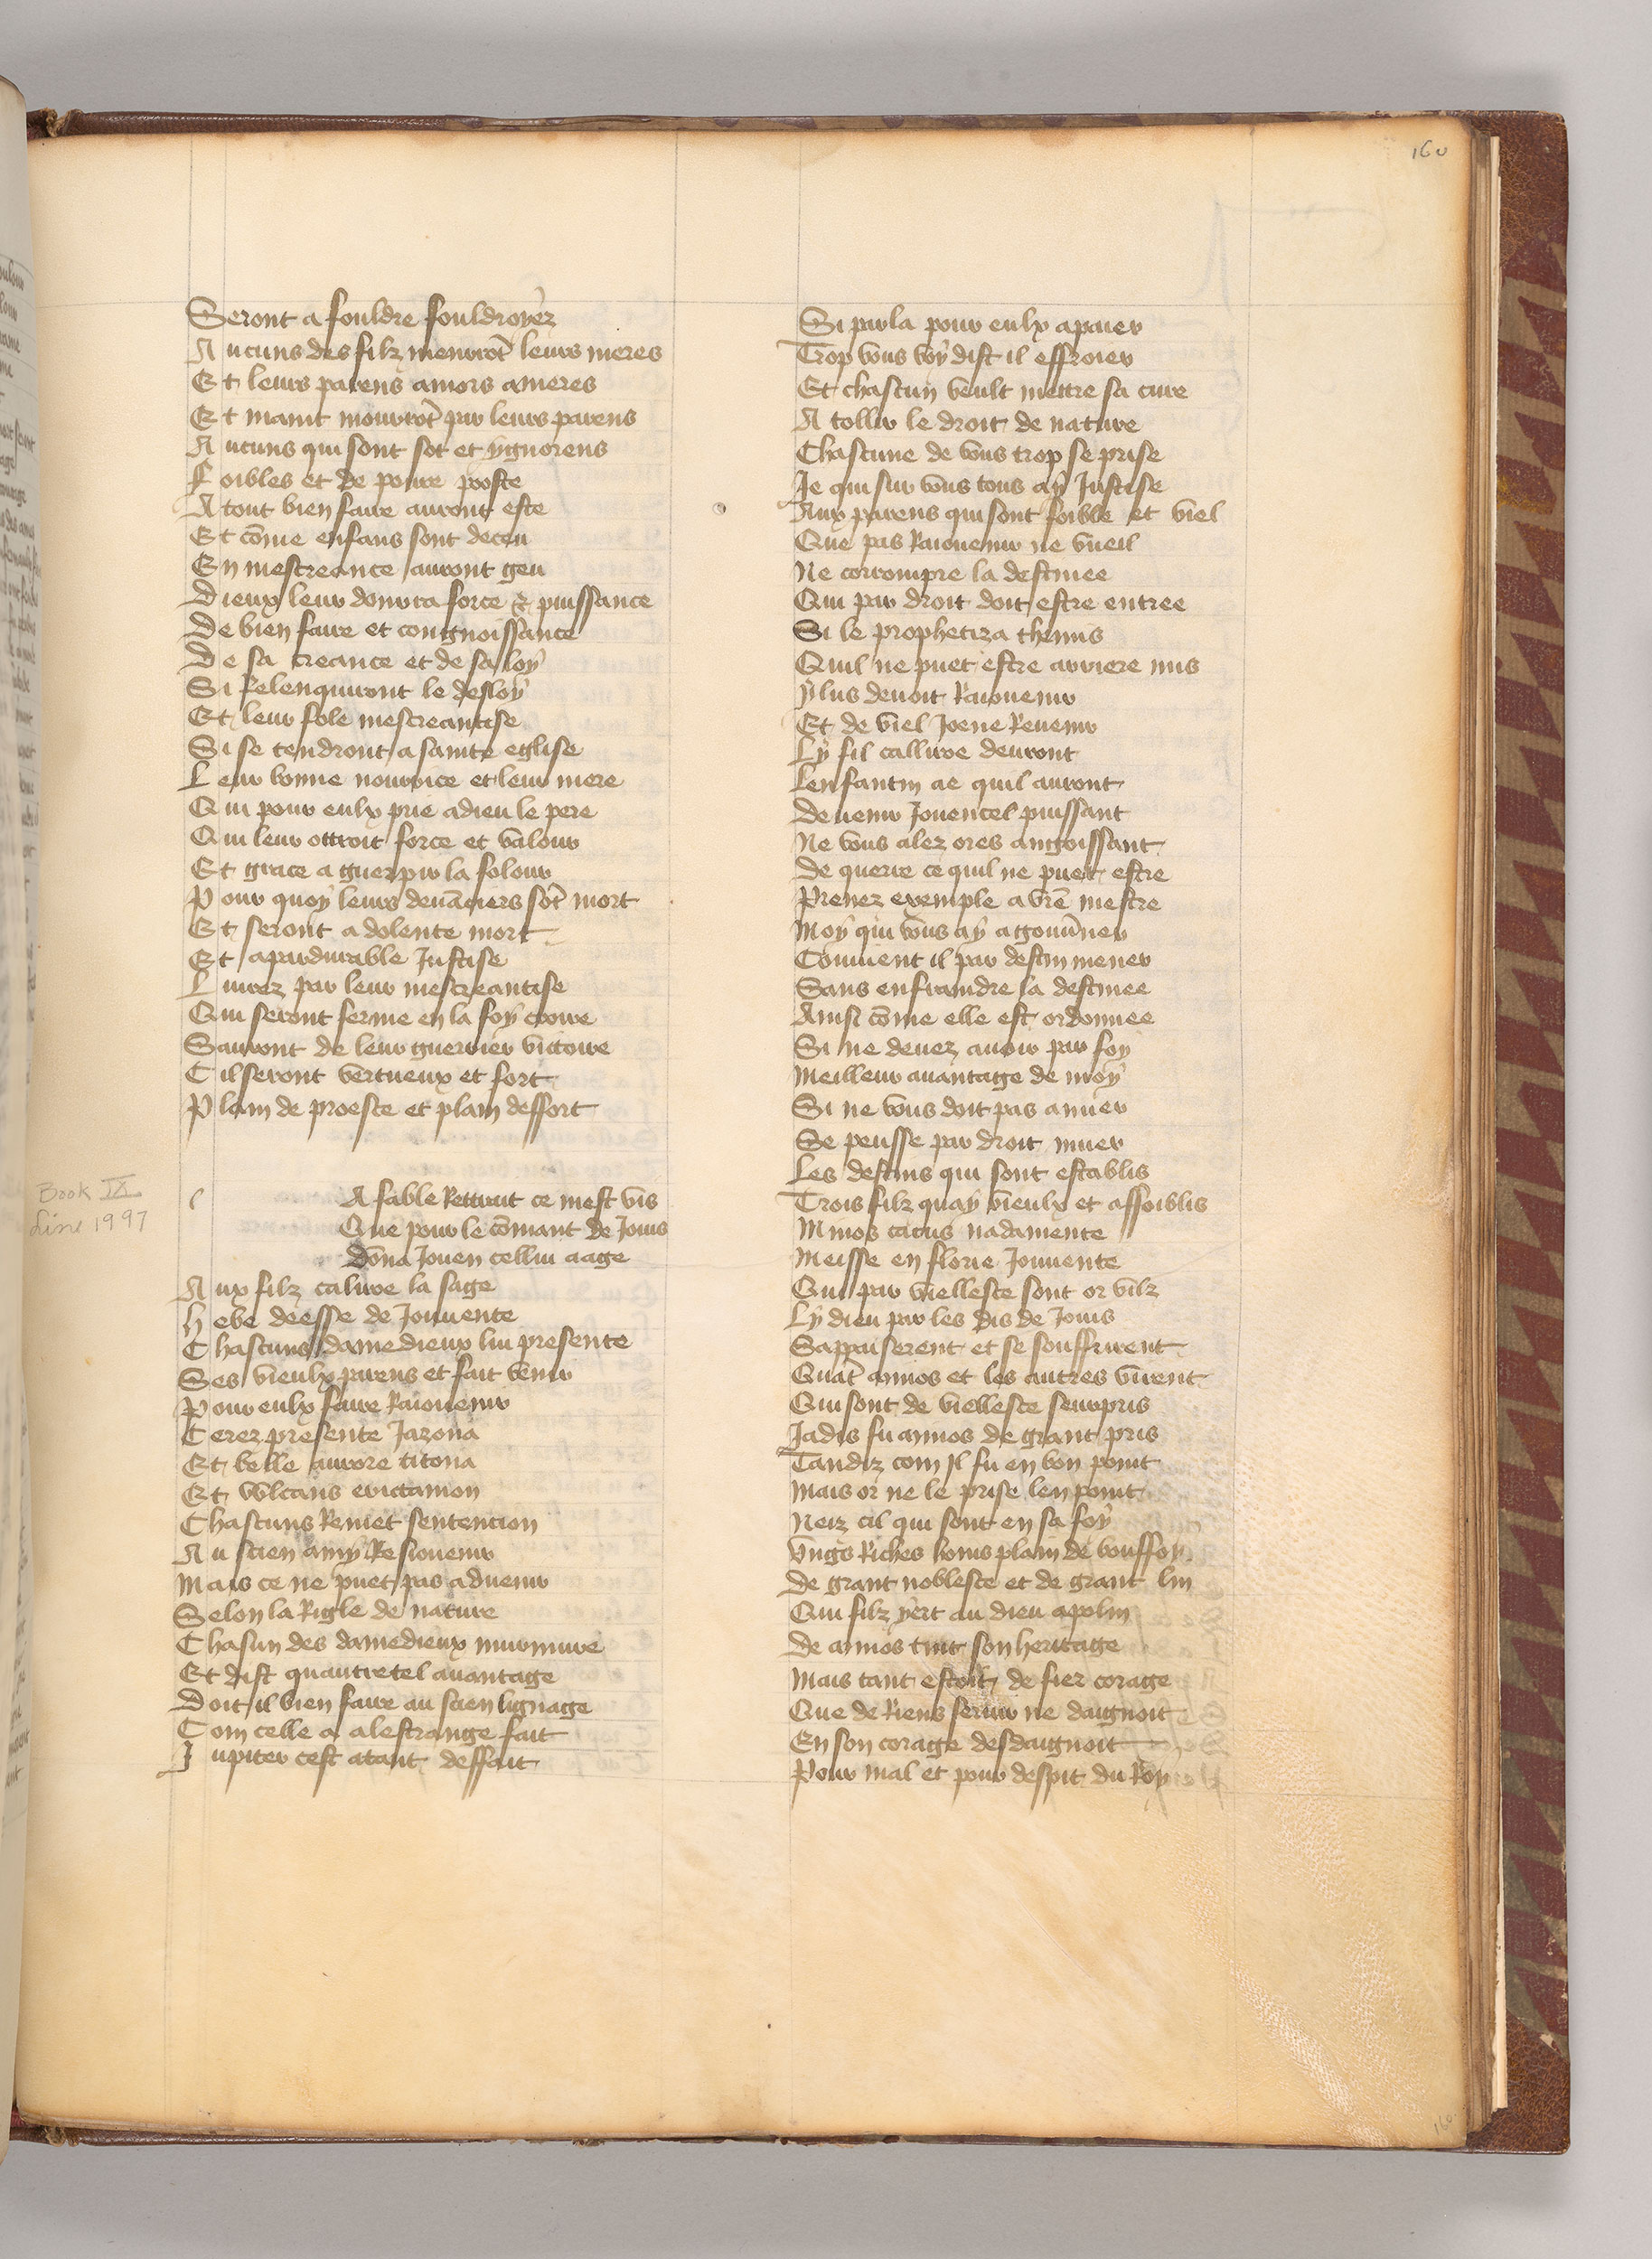 160
Seront a fouldre fouldroyez
Aucuns des filz menrrōt leurs meres
Et leurs parens amors ameres
Et maint mourrōt par leurs parens
Aucuns qui sont sot et ygnorens
Foibles et de poure pooste
A tout bien faire auront este
Et cōme enfans sont deceu
En mescreance auront geu
Dieux leur donrra force & puissance
De bien faire et congnoissance
De sa creance et de sa loy
Si Relenquiront le desloy
Et leur fole mescreantise
Si se tendront a sainte eglise
Leur bonne nourrice et leur mere
Qui pour eulx prie a dieu le pere
Qui leur ottroit force et valour
Et grace a guerpir la folour
Pour quoy leurs deuāciers sōt mort
Et seront a dolente mort
Et a pardurable Justise
Liurez par leur mescreantise
Qui seront ferme en la foy croire
Sauront de leur guerrier victoire
Cil seront vertueux et fort
Plain de proesce et plain deffort
Book IX
Line 1997
l
A fable Rettrait ce mest vis
Que pour le cōmant de Jouis
Dōna Jouen cellui aage
Aux filz caliroe la sage
Hebe deesse de Jouuente
Chascuns damedieux lui presente
Ses vieulx parens et fait venir
Pour eulx faire Raiouenir
Cerez presente Jazona
Et belle aurore titona
Et vulcans erictamon
Chascuns Remet sentencion
Au scien amy Resiouenir
Mais ce ne puet pas aduenir
Selon la Rigle de nature
Chasun des damedieux murmure
Et dist quautretel auantage
Doit il bien faire au scien lignage
Com celle a alestrange fait
Jupiter cest atant deffait
Si parla pour eulx apaier
Trop vous voy dist il effroier
Et chascun veult mettre sa cure
A tollir le droit de nature
Chascune de vous trop se prise
Je qui sur vous tous ay Justise
Aux parens qui sont foible et viel
Que pas Raiouenir ne vueil
Ne corrompre la destinee
Qui par droit doit estre entree
Si le prophetiza themis
Quil ne puet estre arriere mis
Ylus deuoit Raiouenir
Et de viel Joene Reuenir
Ly fil calliroe deuront
Lenfantin ae quil auront
Deuenir Jouencel puissant
Ne vous alez ores angoissant
De querre ce quil ne puet estre
Prenez exemple a vrē mestre
Moy qui vous ay a gouūner
Conuient il par destin mener
Sans enfraindre sa destinee
Ainsi cōme elle est ordonnee
Si ne deuez auoir par foy
Meilleur auantage de moy
Si ne vous doit pas anuier
Se peusse par droit muer
Les destins qui sont establis
Trois filz quay vieulx et affoiblis
Minos eacus Radamente
Meisse en florie Jouuente
Qui par viellesce sont or vilz
Ly dieu par les dis de Jouis
Sappaiserent et se souffrirent
Quāt annos et les autres virent
Qui sont de viellesce seurpris
Jadis fu annos de grant pris
Tandiz com Jl fu en bon point
Mais or ne le prise len point
Neiz cil qui sont en sa foy
Vngs Riches homs plain de bouffoy
De grant noblesce et de grant lin
Qui filz yert au dieu apolin
De annos tint son heritage
Mais tant estoit de fier corage
Que de Riens seruir ne daignoit
En son corage desdaignoit
Pour mal et pour despit du Roy
160